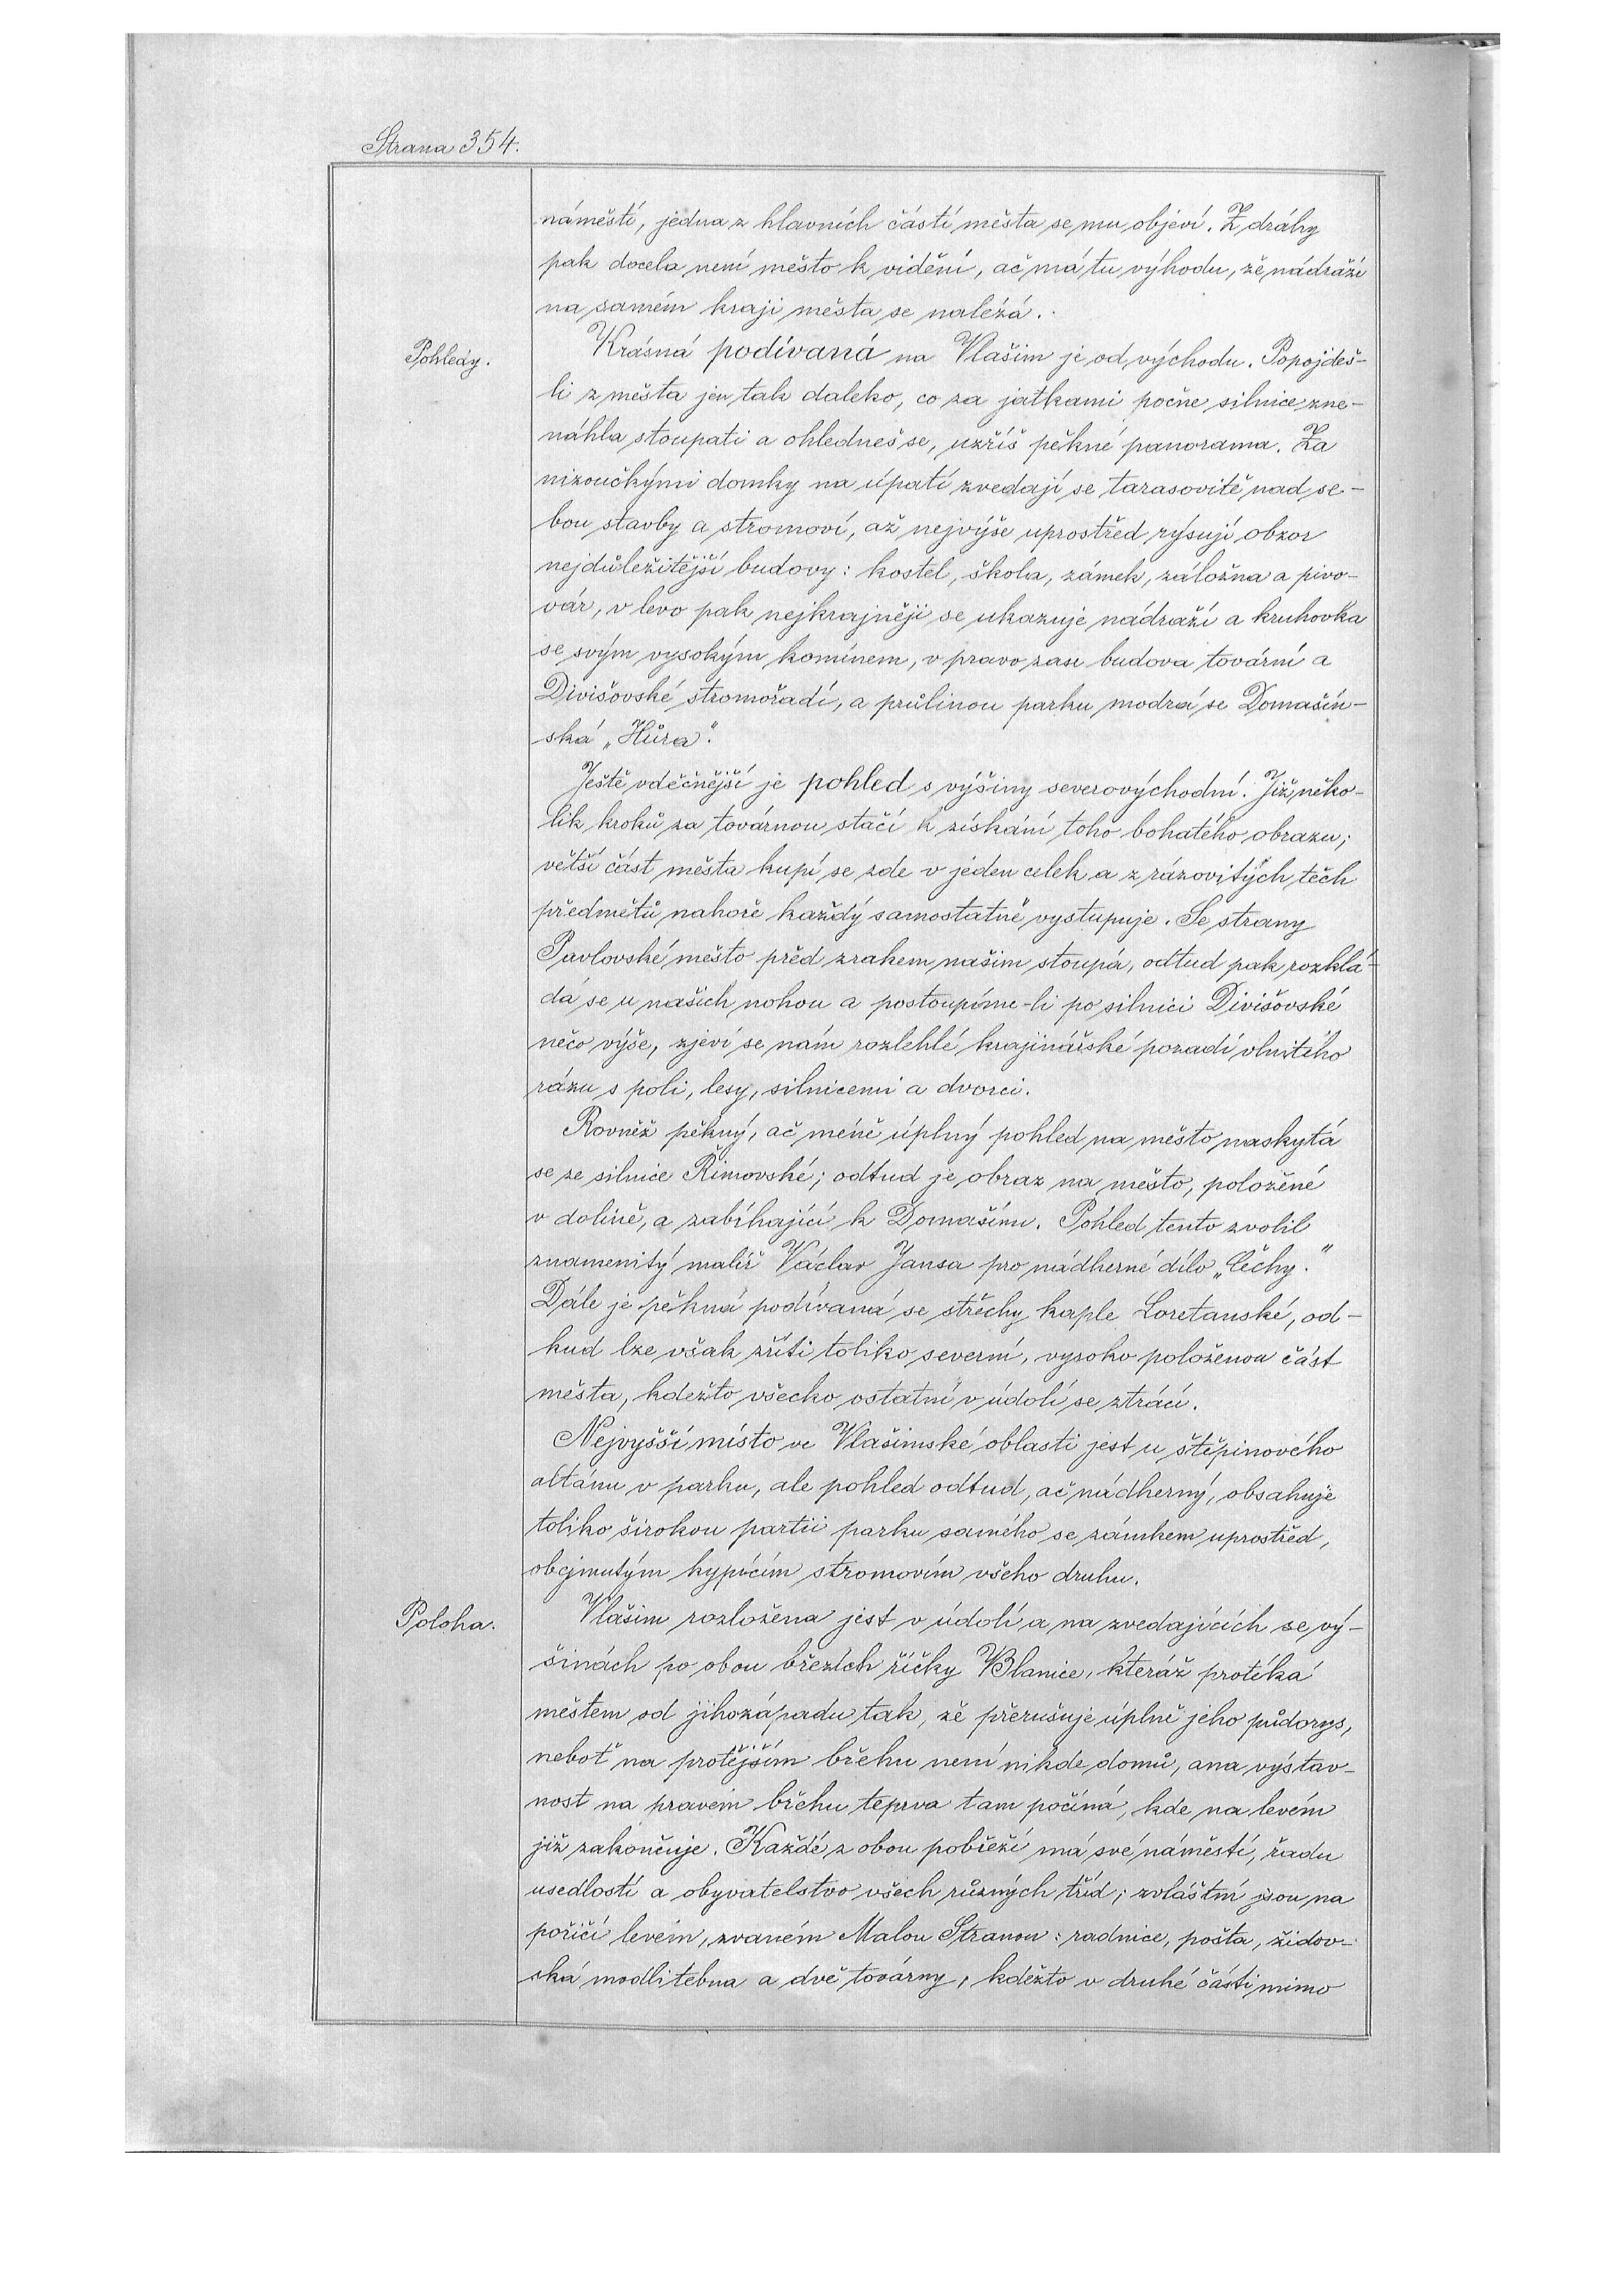 Strana 354.
náměstí, jedna z hlavních částí města se mu objeví. Z dráhy
pak docela není město k vidění, ač má tu výhodu, že nádraží
na samém kraji města se nalézá.
Pohledy.
Krásná podívaná na Vlašim je od východu. Popojdeš-
li z města jen tak daleko, co za jatkami počne silnice zne-
náhla stoupati a ohledneš se, uzříš pěkné panorama. Za
nizoučkými domky na úpatí zvedají se tarasovitě nad se-
bou stavby a stromoví, až nejvýše uprostřed rýsují obzor
nejdůležitější budovy: kostel, škola, zámek, záložna a pivo-
vár, v levo pak nejkrajněji se ukazuje nádraží a kruhovka
se svým vysokým komínem, v pravo zase budova tovární a
Divišovské stromořadí, a průlinou parku modrá se Domašín-
ská „Hůra“.
Ještě vděčnější je pohled s výšiny severovýchodní. Již něko-
lik kroků za továrnou stačí k získání toho bohatého obrazu;
větší část města kupí se zde v jeden celek a z rázovitých těch
předmětů nahoře každý samostatně vystupuje. Se strany
Pavlovské město před zrakem našim stoupá, odtud pak rozklá-
dá se u našich nohou a postoupíme-li po silnici Divišovské
něco výše, zjeví se nám rozlehlé krajinářské pozadí vlnitého
rázu s poli, lesy, silnicemi a dvorci.
Rovněž pěkný, ač méně úplný pohled na město naskytá
se ze silnice Řimovské; odtud je obraz na město, položené
v dolině, a zabíhající k Domašínu. Pohled tento zvolil
znamenitý malíř Václav Jansa pro nádherné dílo „Čechy.“
Dále je pěkná podívaná se střechy kaple Loretanské, od-
kud lze však zříti toliko severní, vysoko položenou část
města, kdežto všecko ostatní v údolí se ztrácí.
Nejvyšší místo ve Vlašimské oblasti jest u štěpinového
altánu v parku, ale pohled odtud, ač nádherný, obsahuje
toliko širokou partii parku samého se zámkem uprostřed,
obejmutým kypícím stromovím všeho druhu.
Poloha.
Vlašim rozložena jest v údolí a na zvedajících se vý-
šinách po obou březích říčky Blanice, kteráž protéká
městem od jihozápadu tak, že přerušuje úplně jeho půdorys,
neboť na protějším břehu není nikde domů, ana výstav-
nost na pravém břehu teprva tam počíná, kde na levém
již zakončuje. Každé z obou pobřeží má své náměstí, řadu
usedlostí a obyvatelstvo všech různých tříd; zvláštní jsou na
poříčí levém, zvaném Malou Stranou: radnice, pošta, židov-
ská modlitebna a dvě továrny, kdežto v druhé části mimo